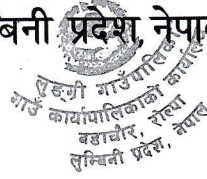 बनी प्रदेश, नेपाल
लुङ्ग्री गाउँपालिका
गाउँ कार्यपालिकाको कार्यालय
बडाचौर, रोल्पा
लुम्बिनी प्रदेश, नेपाल